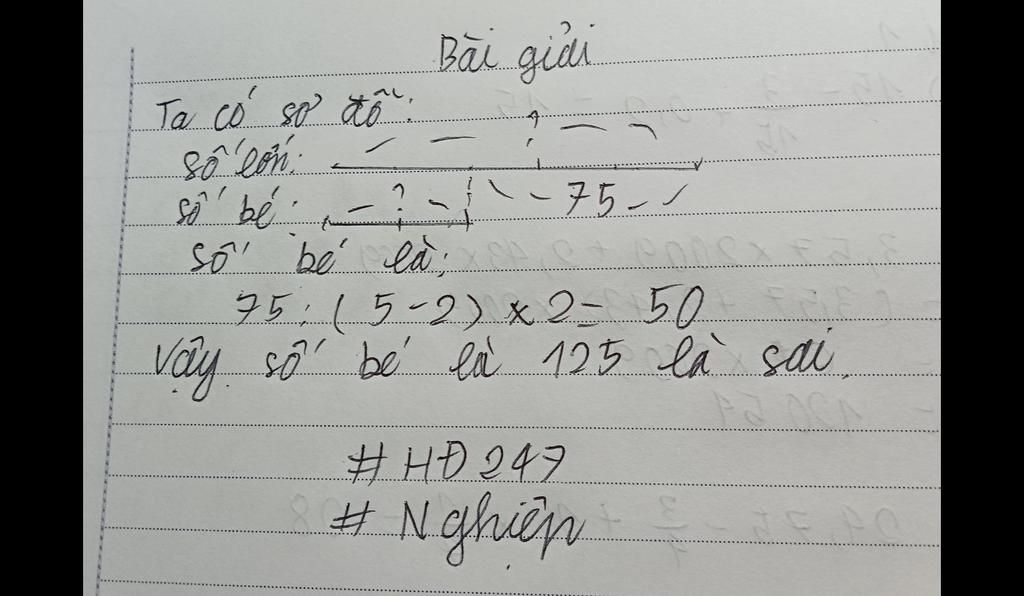 Bài giải
Ta có sơ đồ:
số lớn: ?
số bé: ? 75
số bé là:
75 : ( 5 - 2 ) x 2 = 50
Vậy số bé là 125 là sai.
# HĐ 247
# Nghiệp